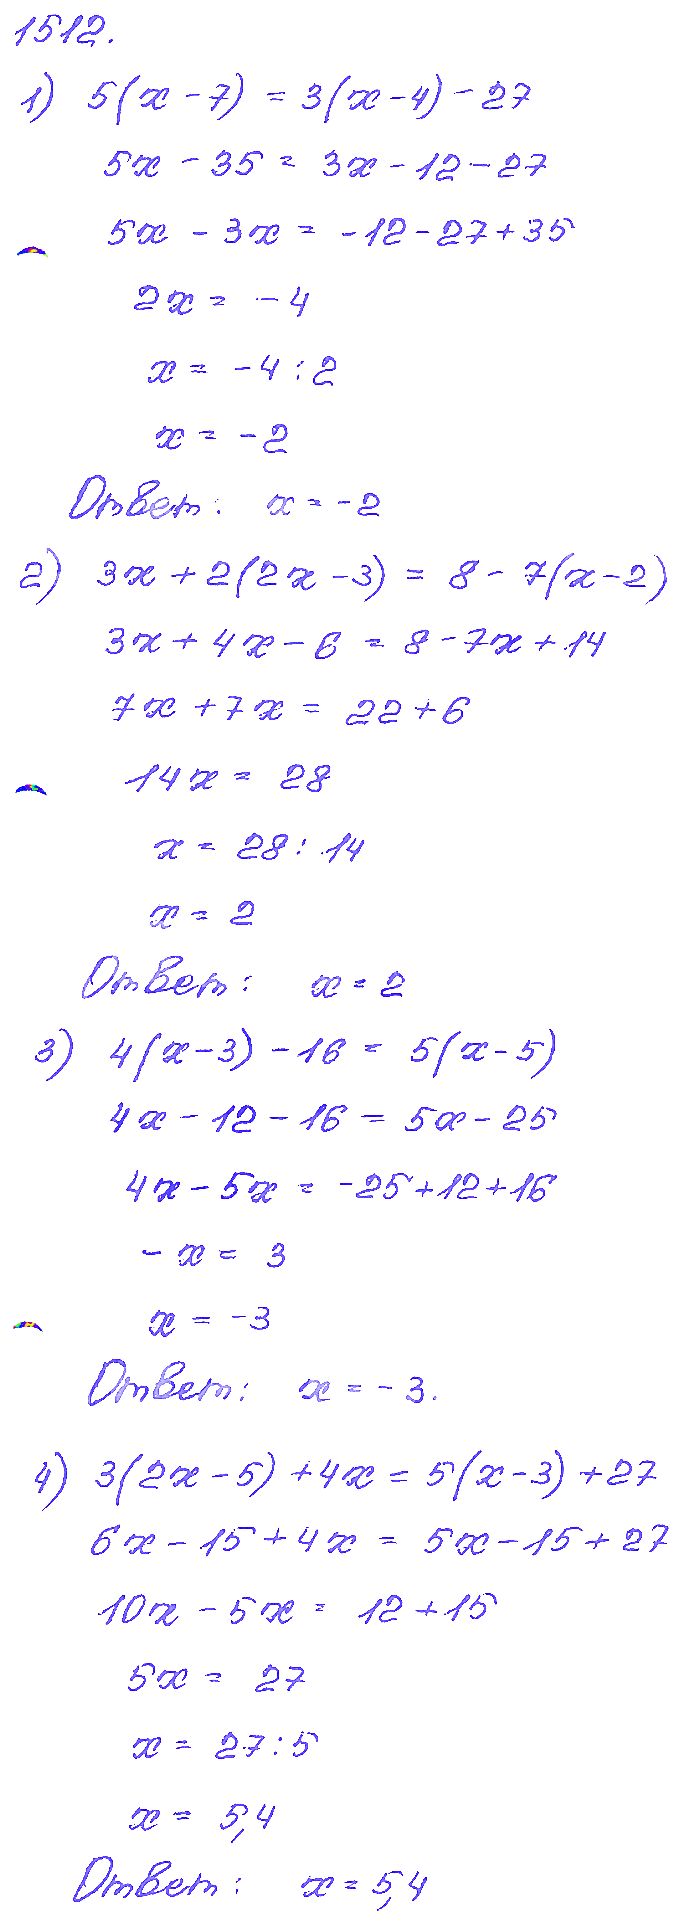 1512.
1) 5(x-7) = 3(x-4) - 27
5x - 35 = 3x - 12 - 27
5x - 3x = -12 - 27 + 35
2x = -4
x = -4 : 2
x = -2
Ответ: x = -2
2) 3x + 2(2x - 3) = 8 - 7(x - 2)
3x + 4x - 6 = 8 - 7x + 14
7x + 7x = 22 + 6
14x = 28
x = 28 : 14
x = 2
Ответ: x = 2
3) 4(x - 3) - 16 = 5(x - 5)
4x - 12 - 16 = 5x - 25
4x - 5x = -25 + 12 + 16
-x = 3
x = -3
Ответ: x = -3.
4) 3(2x - 5) + 4x = 5(x - 3) + 27
6x - 15 + 4x = 5x - 15 + 27
10x - 5x = 12 + 15
5x = 27
x = 27 : 5
x = 5,4
Ответ: x = 5,4